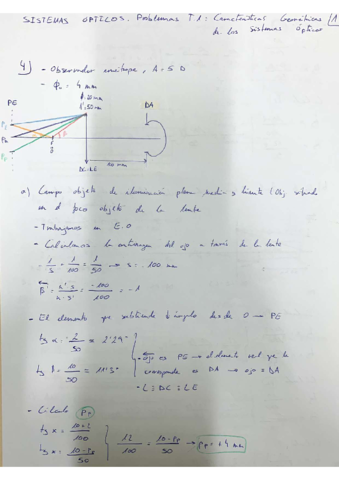 SISTEMAS OPTICOS. Problemas T.1: Características Geométricas 1
de los sistemas ópticos
4) - Observador emétrope, A = 5 D
- ϕ = 4 mm
f' = 50 mm
PE
DA
DC=LE
a) Campo objeto de iluminación plena media y límite (Ob, situado
en el foco objeto de la lente
- Trabajamos en E.O
- Calculamos la entrada del ojo a través de la lente
1/s = 1/100 = 1/50 → s = -100 mm
β = n's/n·s' = -100/100 = -1
- El elemento que subtiende < ángulo desde O → PE
tg α = 2/50 = 2'29°
tg β = 10/50 = 11'3°
- ojo es PE → el elemento real que le
corresponde es DA → ojo = DA
- L = DC = LE
- Cálculo ρp
tg x = 10+2/100
tg x = 10-ρp/50
12/100 = 10-ρp/50 → ρp = +4 mm